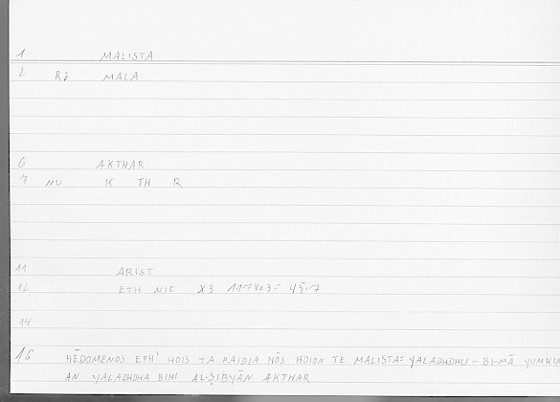 1 MALISTA
2 Ri MALA
6 AKTHAR
7 NU K TH R
11 ARIST
12 ETH NIC X3
14
16 HĒDOMENOS EPH' HOIS TA PAIDIA HŌS HOION TE MALISTA= YALADHDHU - BI-MĀ YUMKIN
AN YALADHDHA BIHI AL-ṢIBYĀN AKTHAR